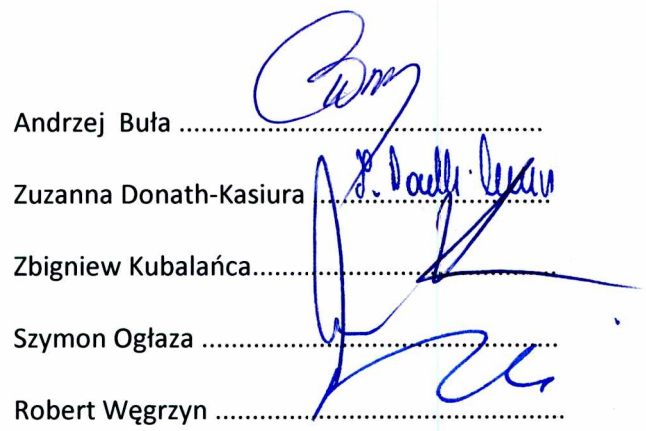 Andrzej Buła ......................................................
Zuzanna Donath-Kasiura ....................................
Zbigniew Kubalańca.............................................
Szymon Ogłaza ....................................................
Robert Węgrzyn ...................................................